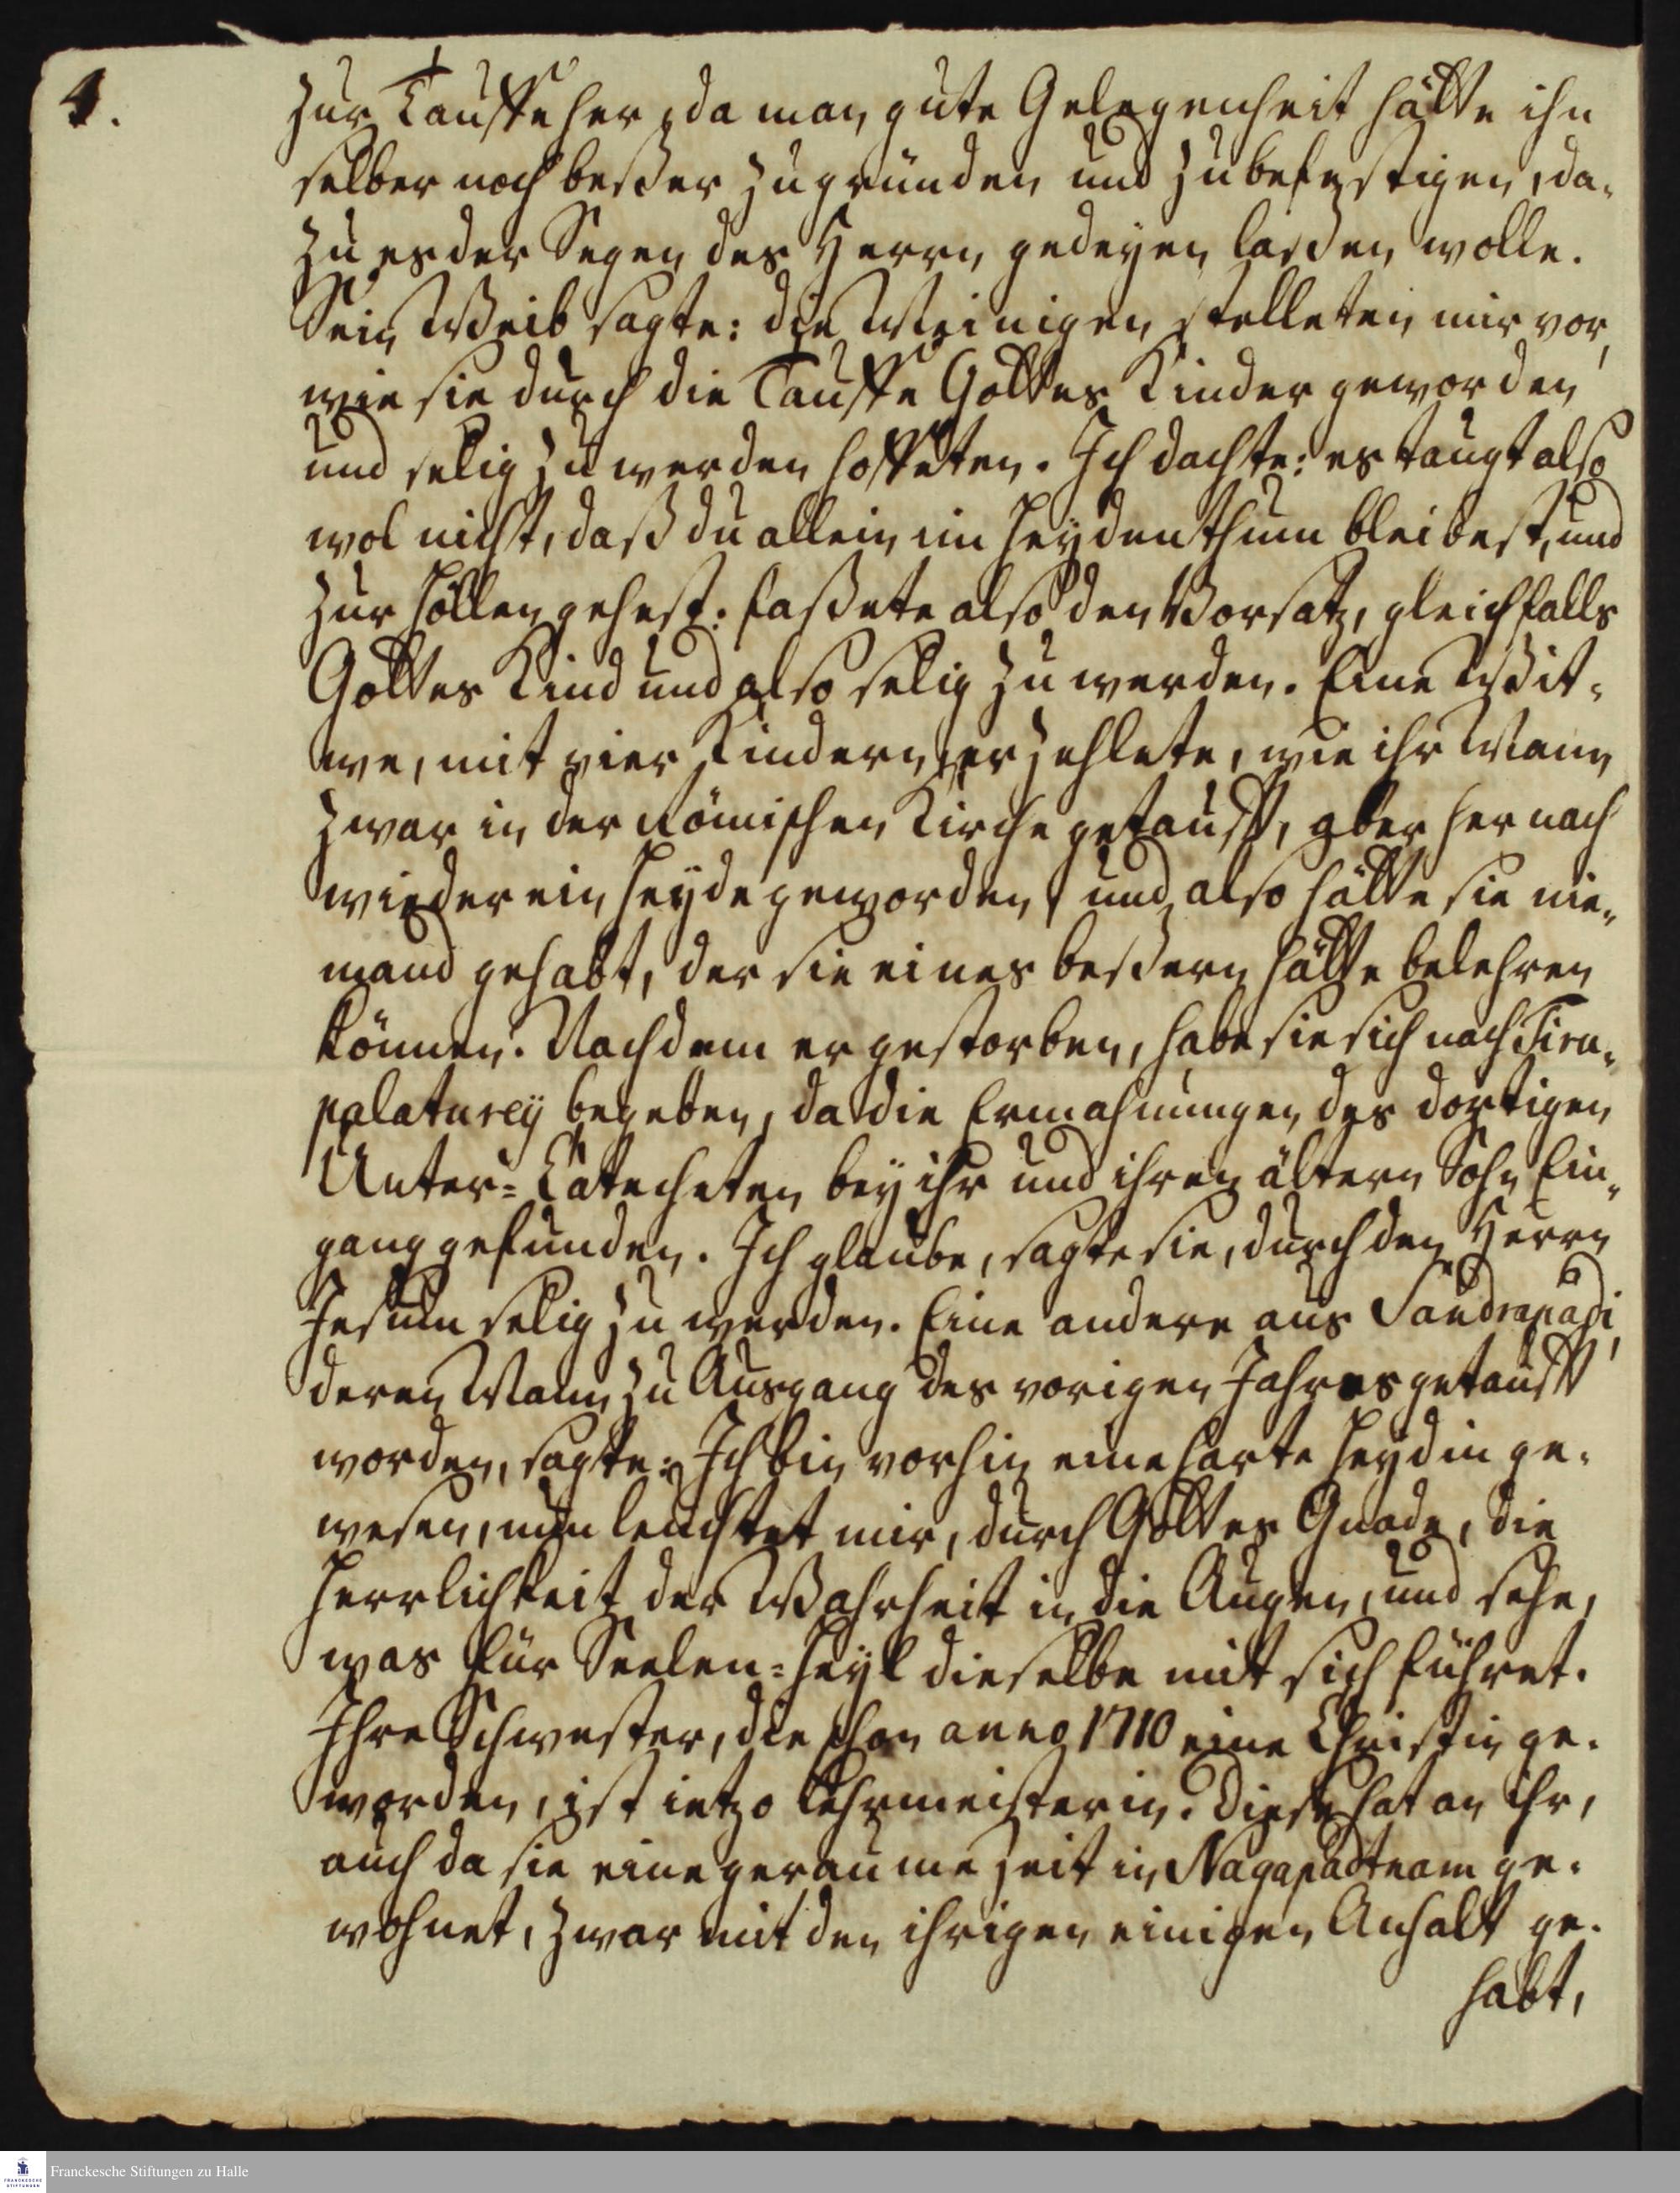 4.
zur Tauffe her, da man gute Gelegenheit hätte ihn
selber noch beßer zu gründen und zu befestigen, da-
zu es der Segen des Herrn gedeyen laßen wolle.
Sein Weib sagte: die Meinigen stelleten mir vor,
wie sie durch die Tauffe Gottes Kinder geworden
und selig zu werden hoffeten. Ich dachte: es taugt also
wol nicht, daß du allein im Heydenthum bleibest, und
zur Höllen gehest: faßete also den Vorsatz, gleichfalls
Gottes Kind und also selig zu werden. Eine Wit-
we, mit vier Kindern, erzehlete, wie ihr Mann
zwar in der Römischen Kirche getaufft, aber hernach
wieder ein Heyde geworden, und also hätte sie nie-
mand gehabt, der sie eines beßern hätte belehren
können. Nachdem er gestorben, habe sie sich nach Tiru-
palaturey begeben, da die Ermahnungen des dortigen
Unter-Catecheten bey ihr und ihren ältern Sohn Ein-
gang gefunden. Ich glaube, sagte sie, durch den Herrn
Jesum selig zu werden. Eine andere aus Sandrapadi,
deren Mann zu Ausgang des vorigen Jahres getaufft
worden, sagte: Ich bin vorhin eine harte Heydin ge-
wesen, nun leuchtet mir, durch Gottes Gnade, die
Herrlichkeit der Wahrheit in die Augen, und sehe,
was für Seelen-Heyl dieselbe mit sich führet.
Ihre Schwester, die schon anno 1710 eine Christin ge-
worden, ist ietzo Lehrmeisterin. Diese hat an ihr,
auch da sie eine geraume Zeit in Nagapadtnam ge-
wohnet, zwar mit den ihrigen einigen Anhalt ge-
habt,
Franckesche Stiftungen zu Halle